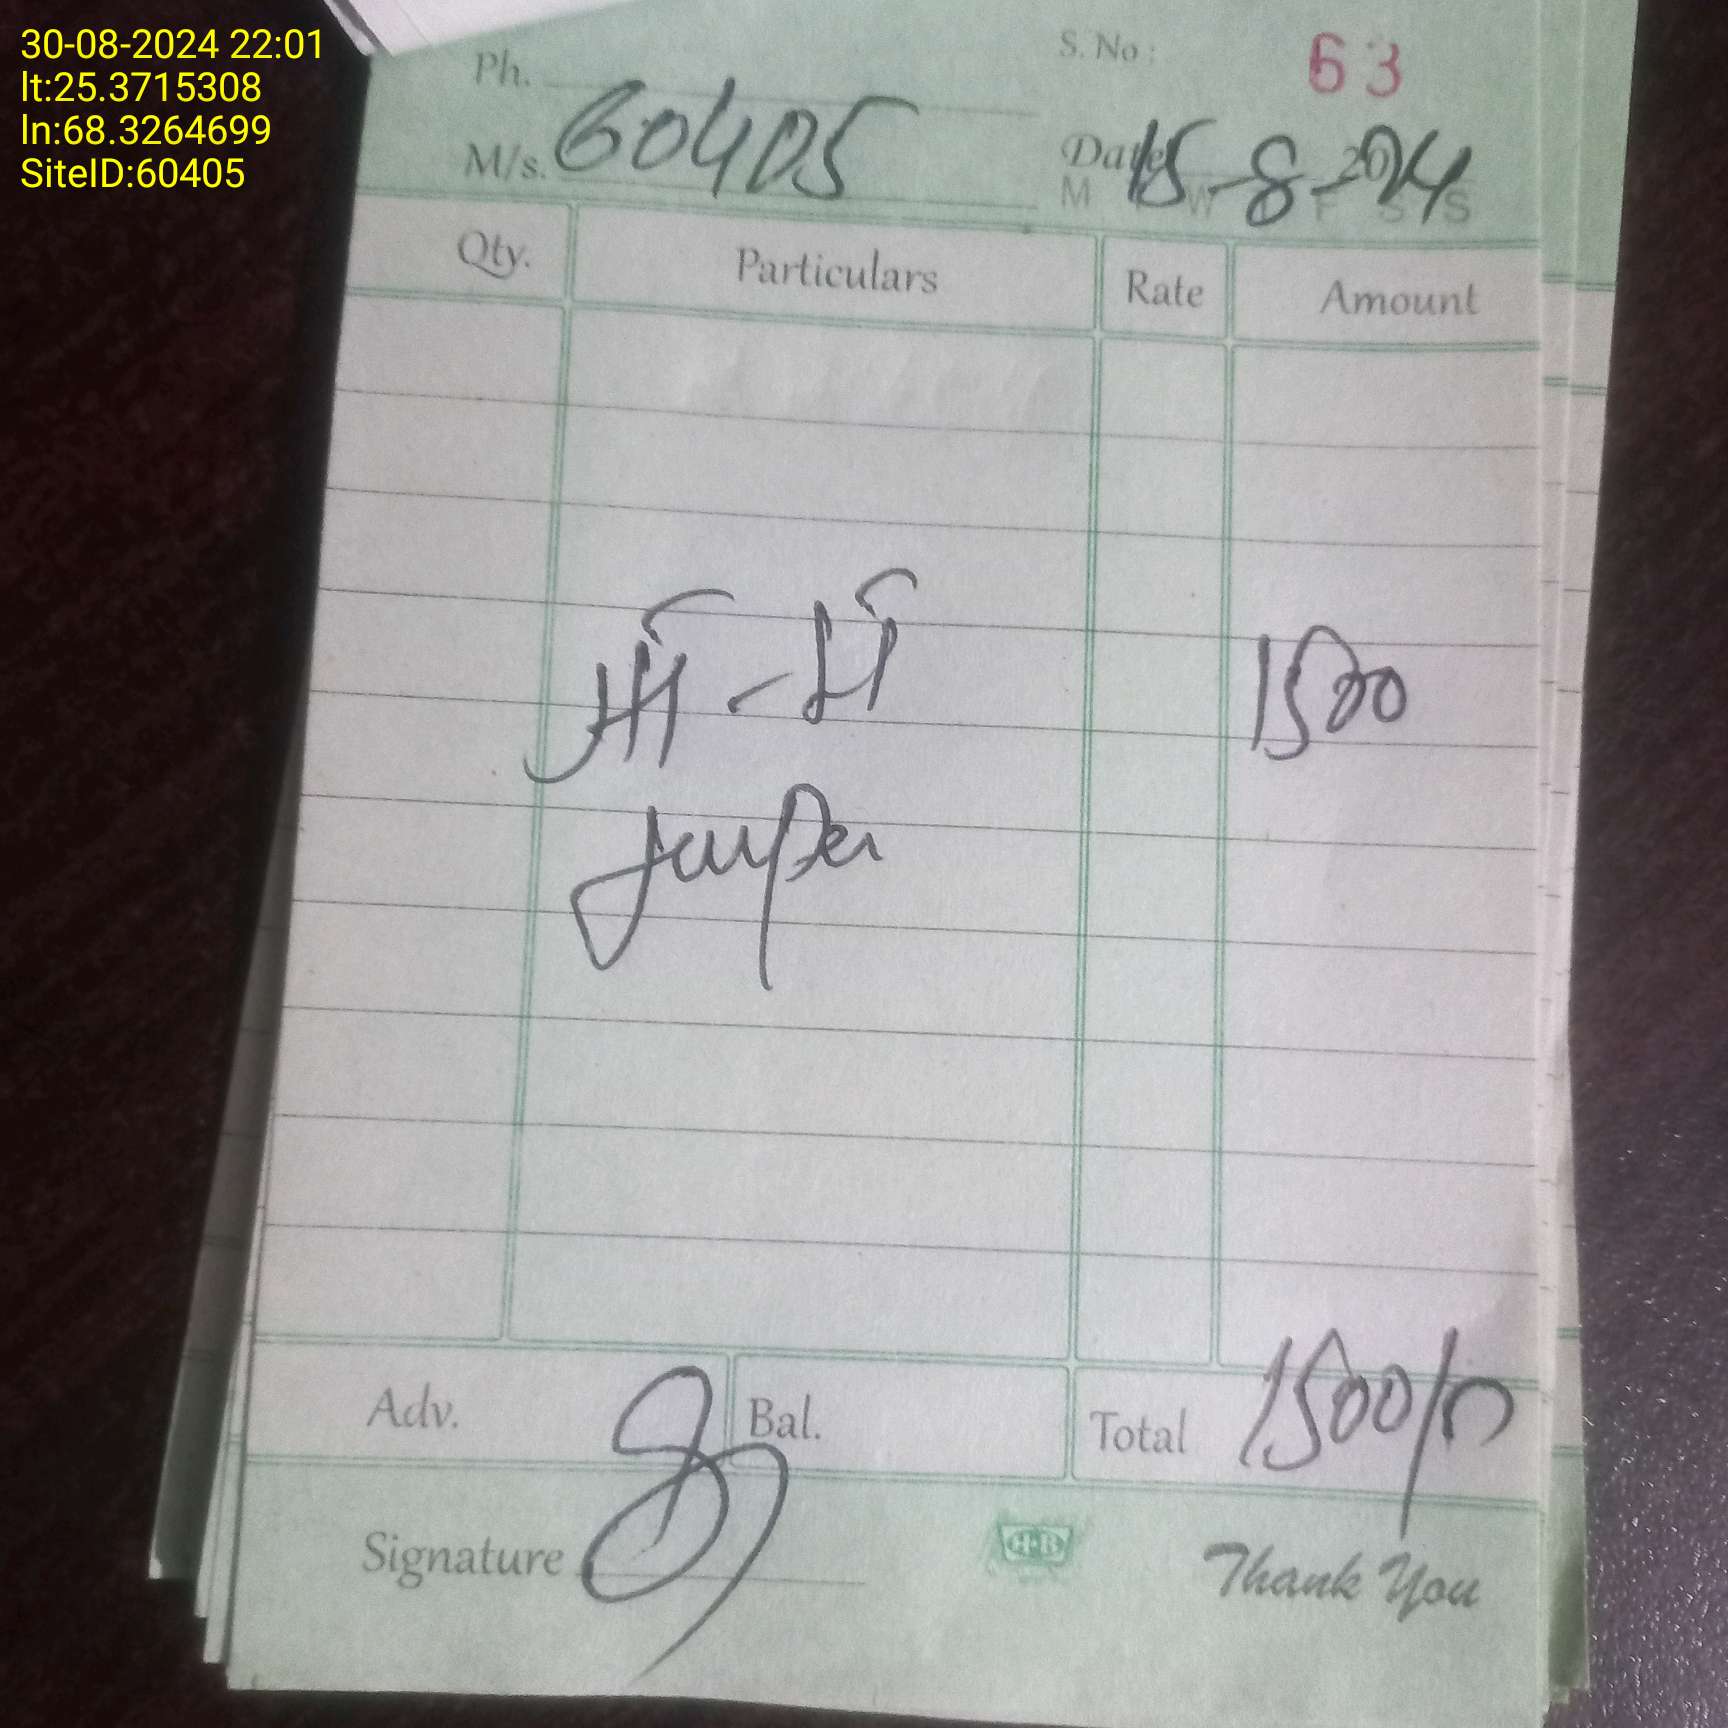 30-08-2024 22:01
lt:25.3715308
ln:68.3264699
SiteID:60405
Ph.
S. No: 63
M/s. 60405
Date 15-8-2024
M W F S S
Qty. Particulars Rate Amount
1500
Adv. Bal. Total 1500/
Signature
H·B
Thank You